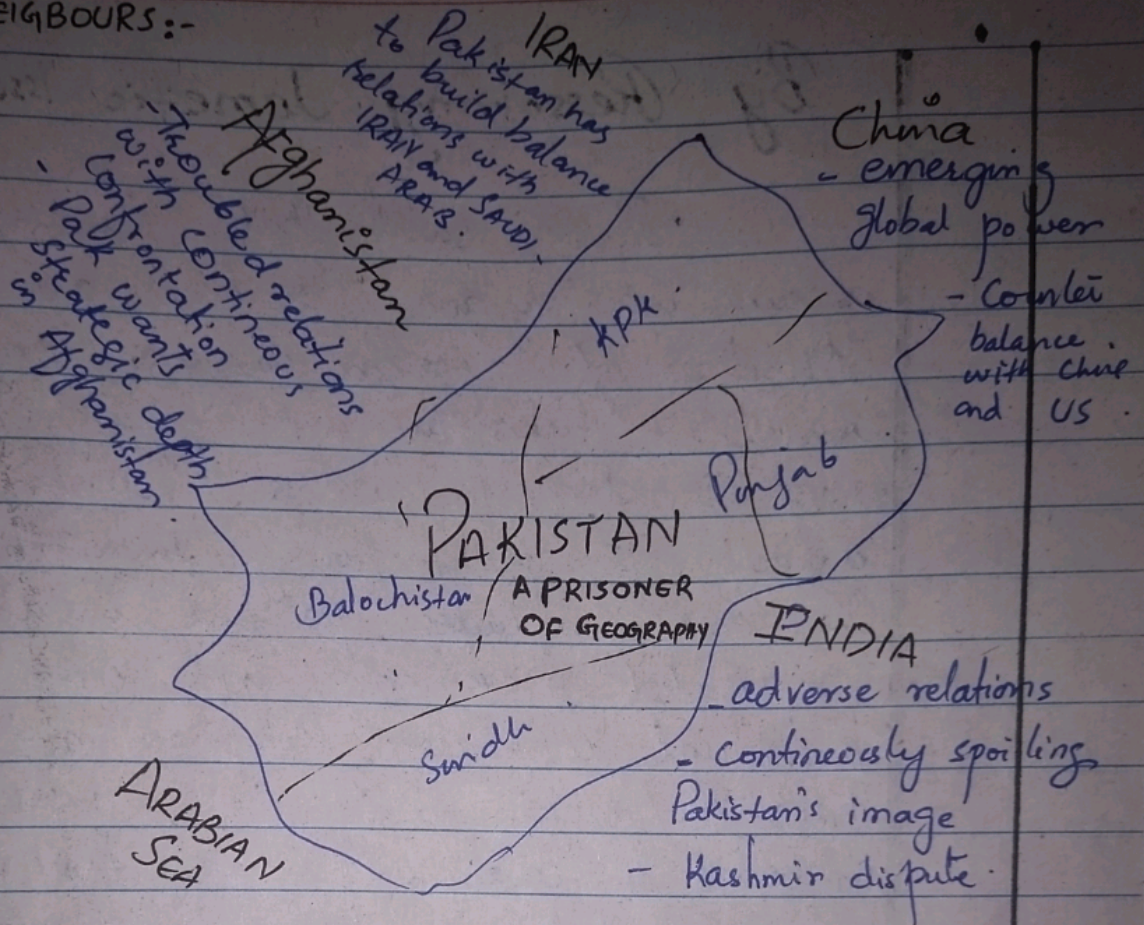 EIGBOURS:-
IRAN
to Pakistan has
to build balance
relations with
IRAN and SAUDI
ARAB.
Afghanistan
- Troubled relations
with contineous
confrontation
- Pak wants
strategic depth
in Afghanistan
China
- emerging
global power
- Counter
balance.
with Chine
and US.
KPK
Punjab
'PAKISTAN
A PRISONER
OF GEOGRAPHY
Balochistan
Sindh
INDIA
- adverse relations
- Contineously spoiling
Pakistan's image
- Kashmir dispute.
ARABIAN
SEA